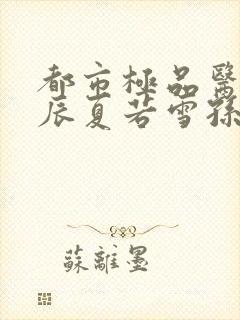 都市極品醫
辰夏若雪孫
蘇離墨